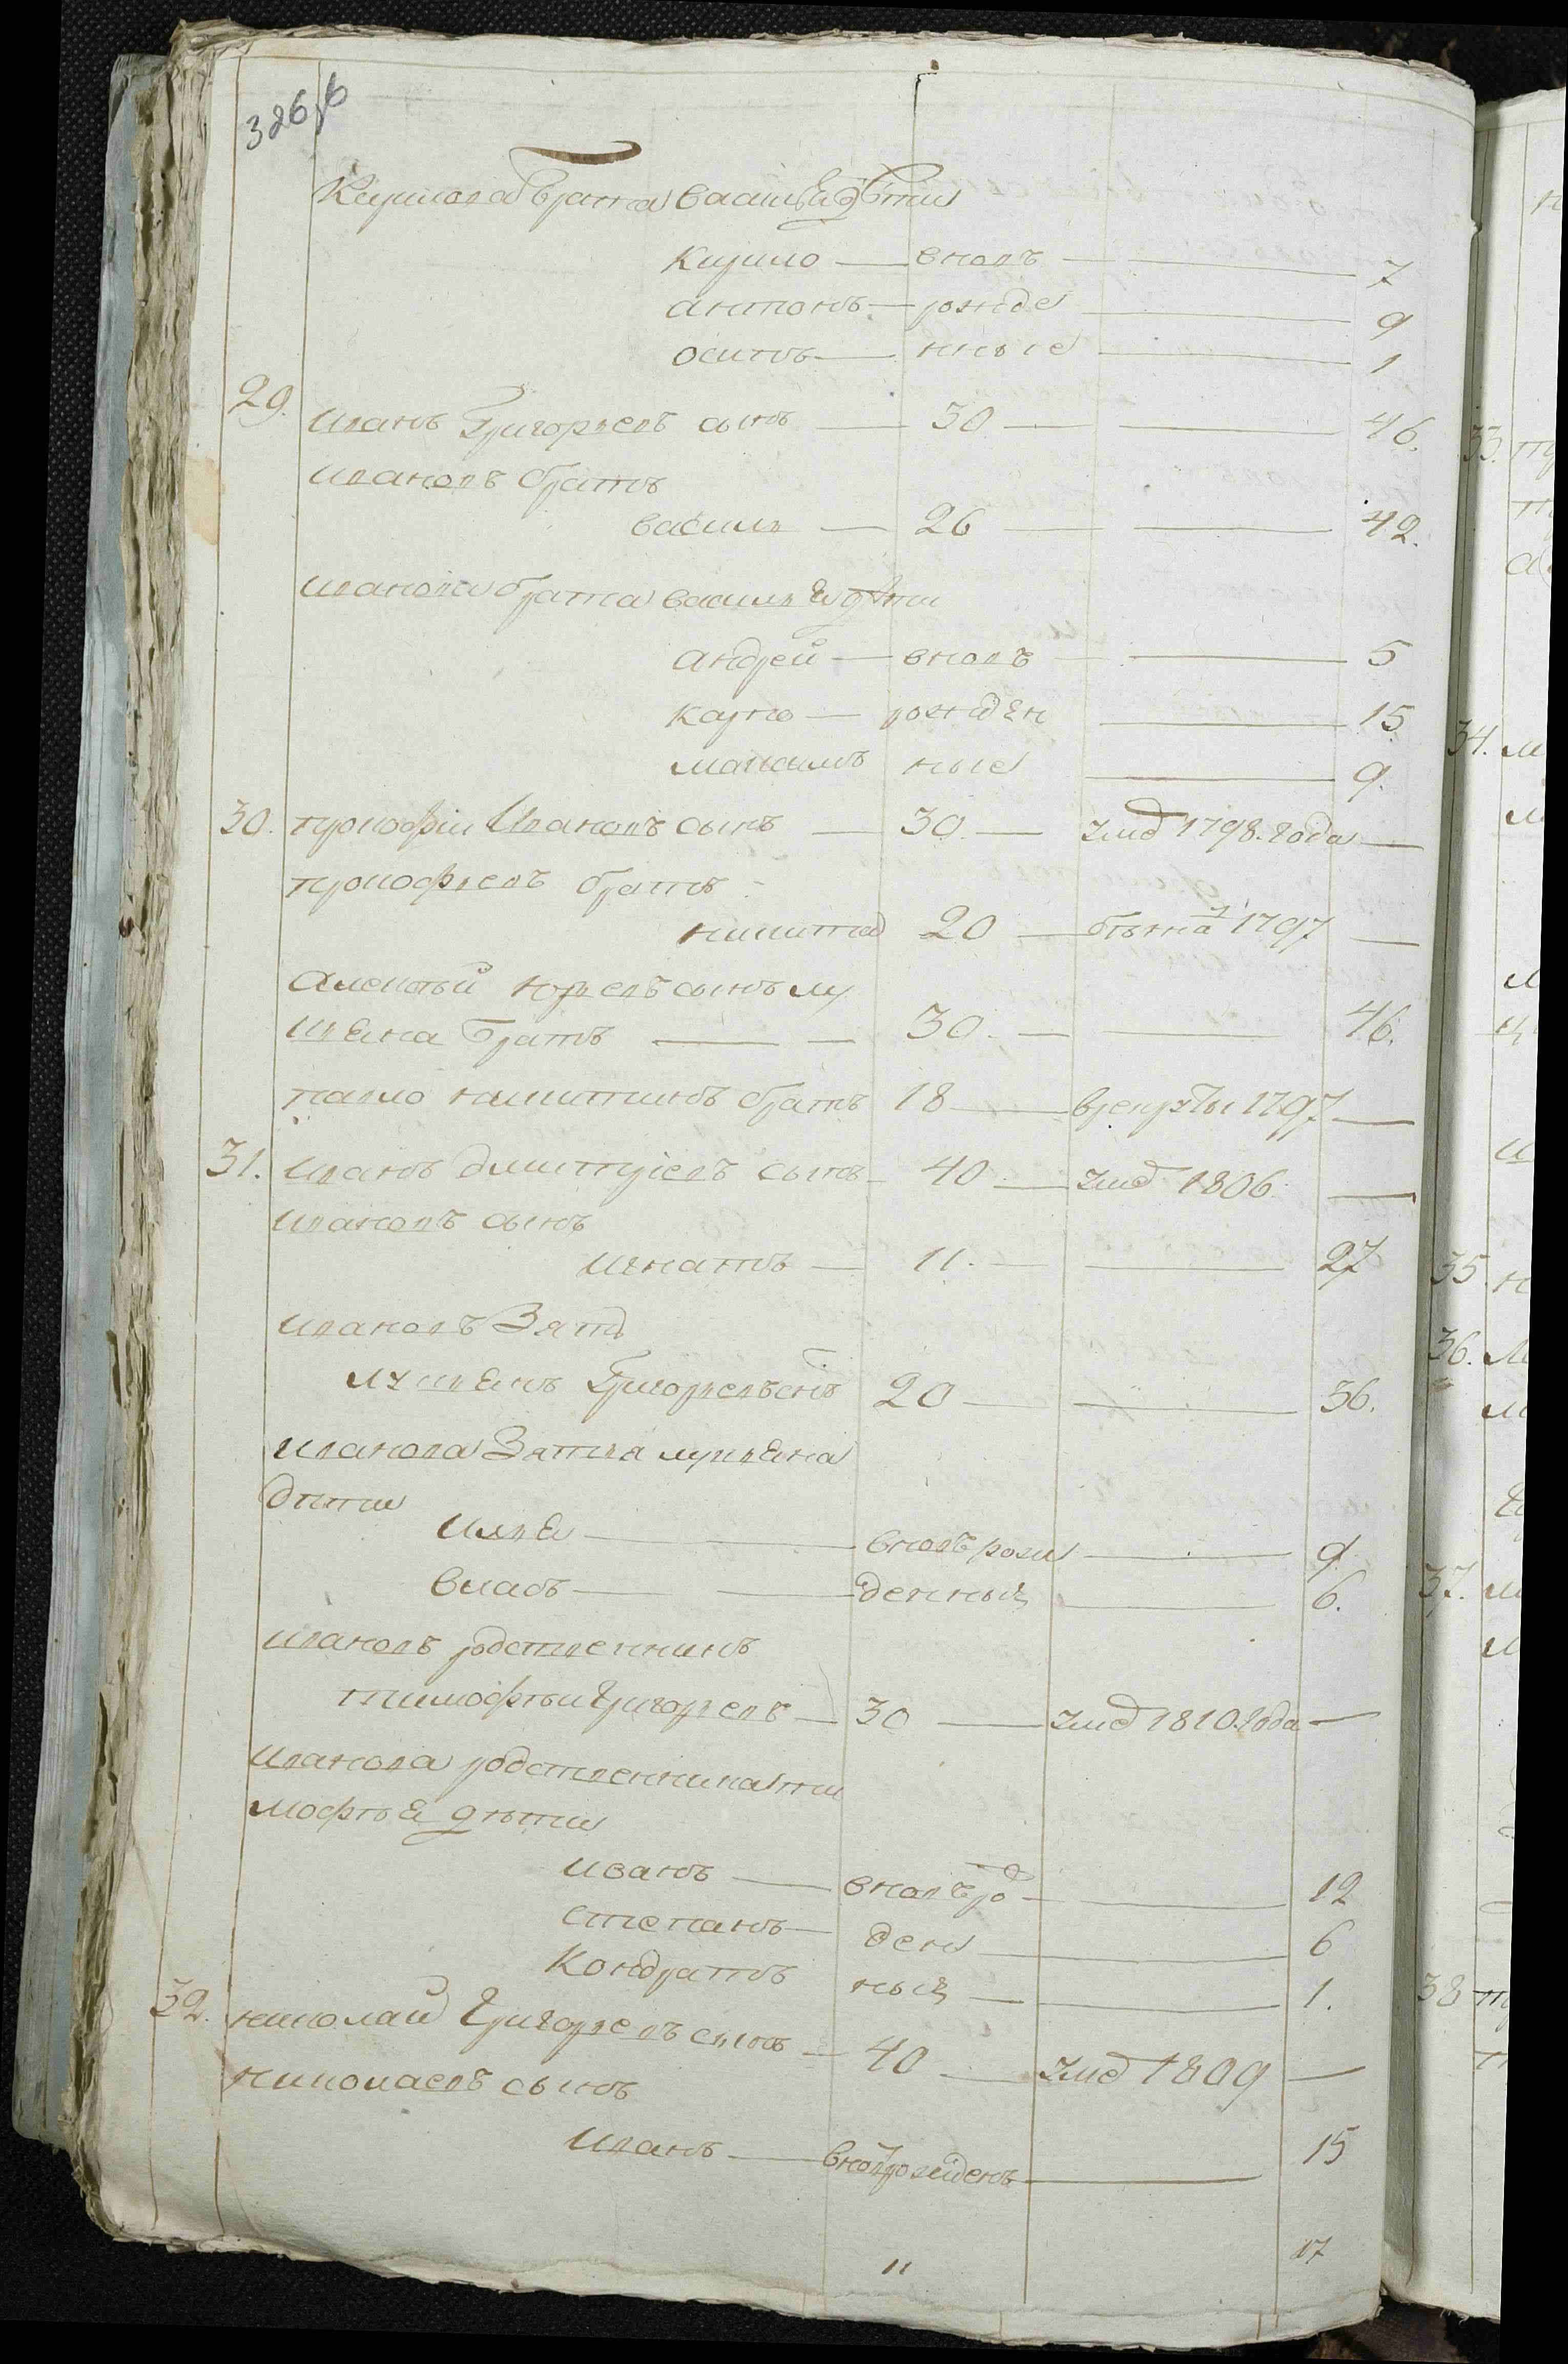 326 об
Кирилова брата Василья дѣти
Кирило — вновь — 7
антонъ — рожде — 9
осипъ — нные — 1
29. Иванъ Григорьевъ сынъ — 30 — 46.
Ивановъ братъ
василь — 26 — 42.
Иванова брата василья дѣти
андрей — вновь — 5
карпъ — рожден — 15
максимъ ные — 9.
30. прокофiи Ивановъ сынъ — 30 — умѣ 1798. года —
прокофьевъ братъ
никита 20 — бѣжа 1797 —
Алексѣй юрьевъ сынъ лу
кьяна братъ — 30. — 46.
павло никитинъ братъ 18 — в рекруты 1797 —
31. Иванъ дмитрiевъ сынъ — 40 — умѣ 1806. —
Ивановъ сынъ
игнатъ — 11. — 27
Ивановъ Зять
лукьянъ Григорьевъ снъ 20 — 36.
Иванова Зятья лукьяна
дѣти
Илья — вновь рож — 9.
власъ — денныя — 6.
Ивановъ родственникъ
тимофѣй Григорьевъ — 30 — умѣ 1810. года —
Иванова родственника ти
мофѣя дѣти
иванъ — вновь рож — 12
степанъ — ден — 6
Кондратъ ныя — 1.
32. николай Григорьевъ сынъ — 40 — умѣ 1809 —
николаевъ сынъ
Иванъ — вновь рожденъ — 15
11 17